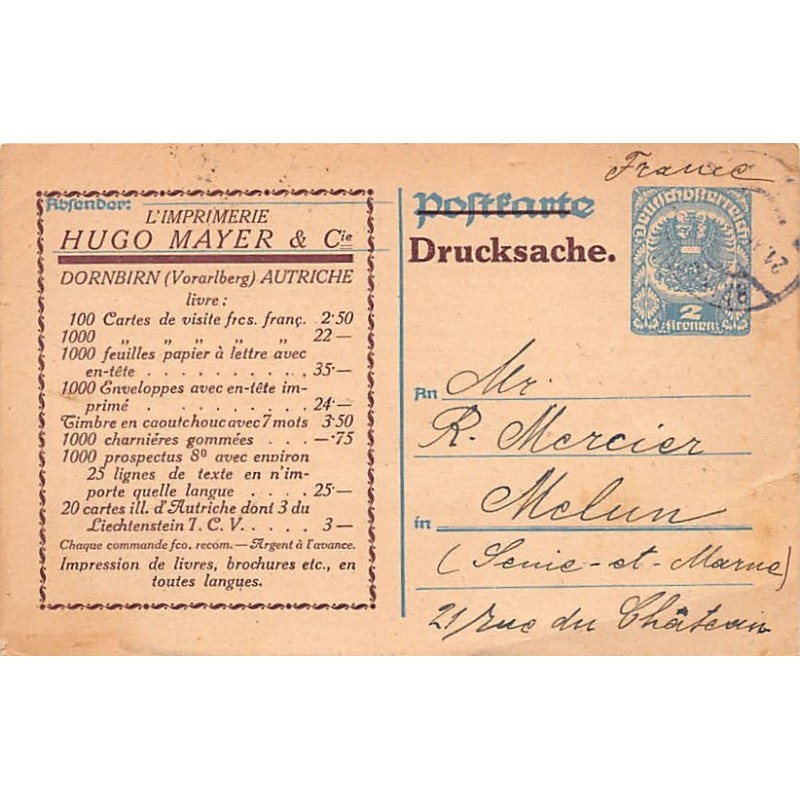 Absender:
L'IMPRIMERIE
HUGO MAYER & Cie
DORNBIRN (Vorarlberg) AUTRICHE
livre:
100 Cartes de visite frcs. franç. 2·50
1000 „ „ „ „ „ 22—
1000 feuilles papier à lettre avec
en-tête . . . . . . . . . . 35·—
1000 Enveloppes avec en-tête im-
primé . . . . . . . . . 24·—
Timbre en caoutchouc avec 7 mots 3·50
1000 charniéres gommées . . . —·75
1000 prospectus 8º avec environ
25 lignes de texte en n'im-
porte quelle langue . . . . 25·—
20 cartes ill. d'Autriche dont 3 du
Liechtenstein T. C. V. . . . . 3—
Chaque commande fco. recom. — Argent à l'avance.
Impression de livres, brochures etc., en
toutes langues.
France
Postkarte
Drucksache.
Deutschösterreich
2
Kronen
An Mr.
R. Mercier
in Melun
(Seine-et-Marne)
21 rue du Château